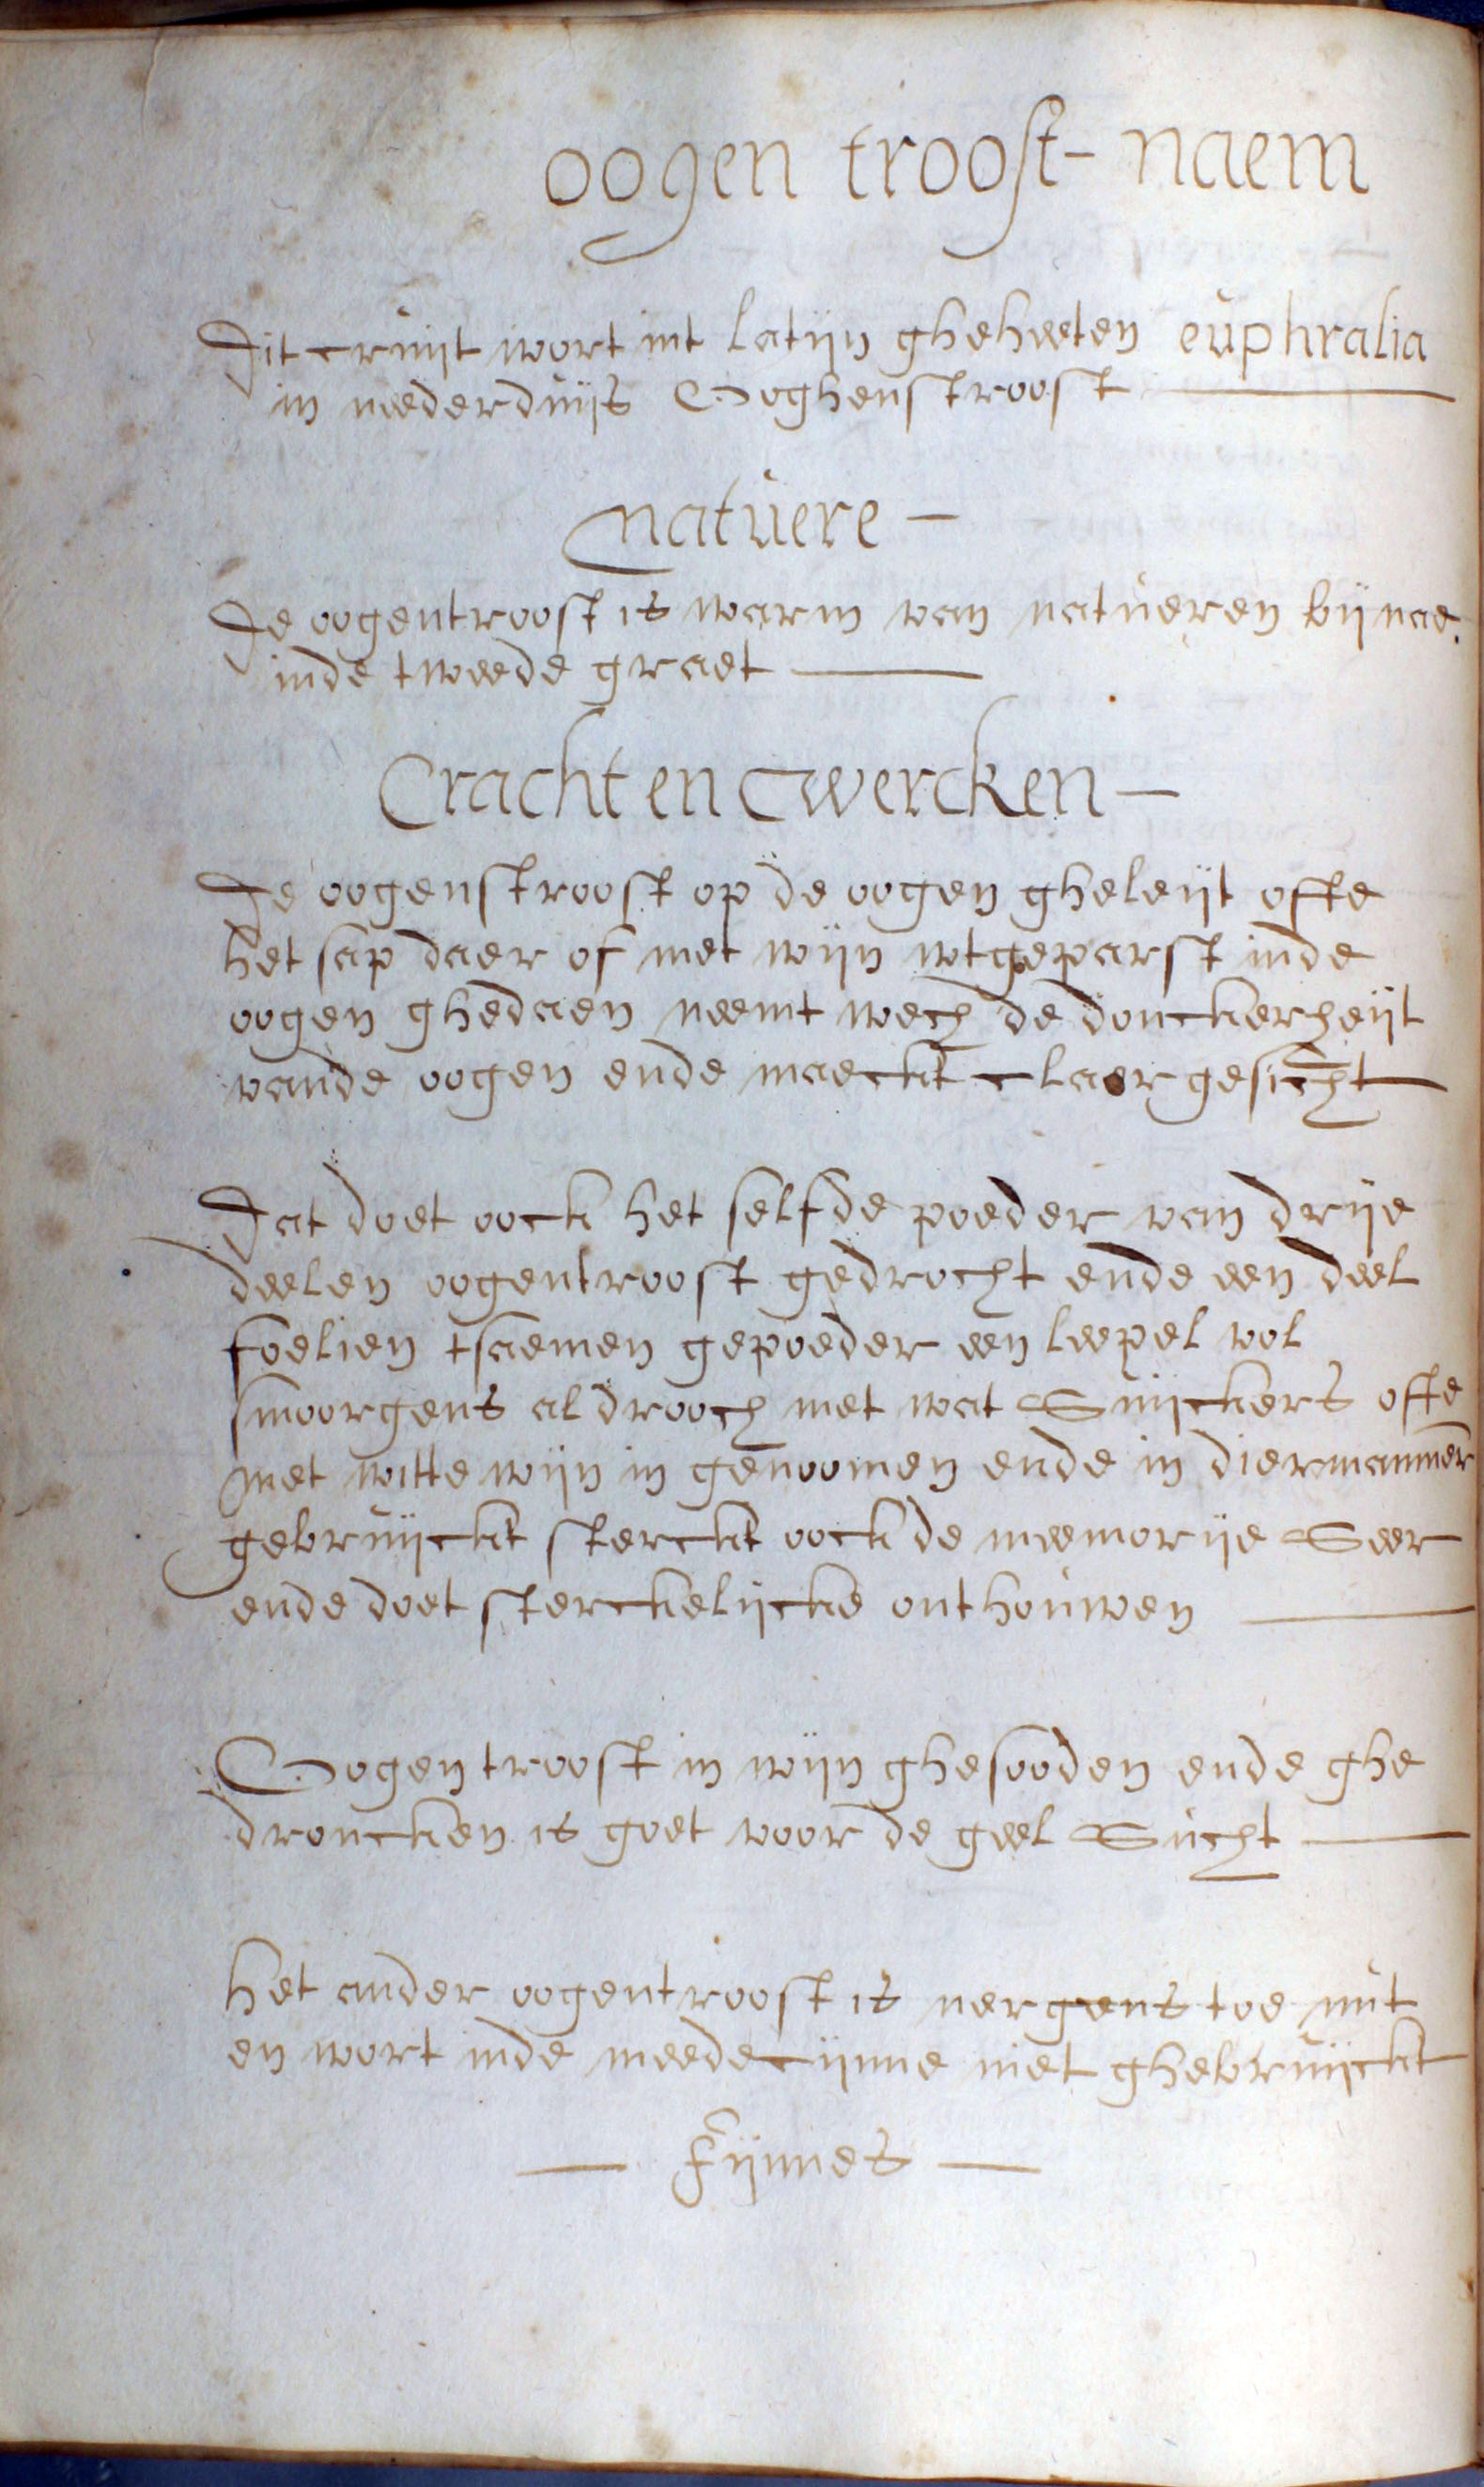 oogen troost - naem
Dit cruijt wort int latijn gheheeten euphralia
in neederduijts Ooghenstroost
natuere -
De oogentroost is warm van natueren bijnae
inde tweede graet
Cracht en wercken -
De oogenstroost op de oogen gheleijt ofte
het sap daer of met wijn wtgeparst inde
oogen ghedaen neemt wech de donckerheijt
vande oogen ende maeckt claer gesicht
Dat doet oock het selfde poeder van drije
deelen oogentroost gedrocht ende een deel
foelien tsaemen gepoeder een leepel vol
smoorgens al drooch met wat Suijckers ofte
met witte wijn in genoomen ende in dier manner
gebruijckt sterckt oock de meemorije Seer
ende doet sterckelijcke onthouwen
Oogentroost in wijn ghesooden ende ghe
droncken is goet voor de geel Sucht
het ander oogentroost is nergens toe nut
en wort inde meedecijnne niet ghebruijckt
- Fijnnes -